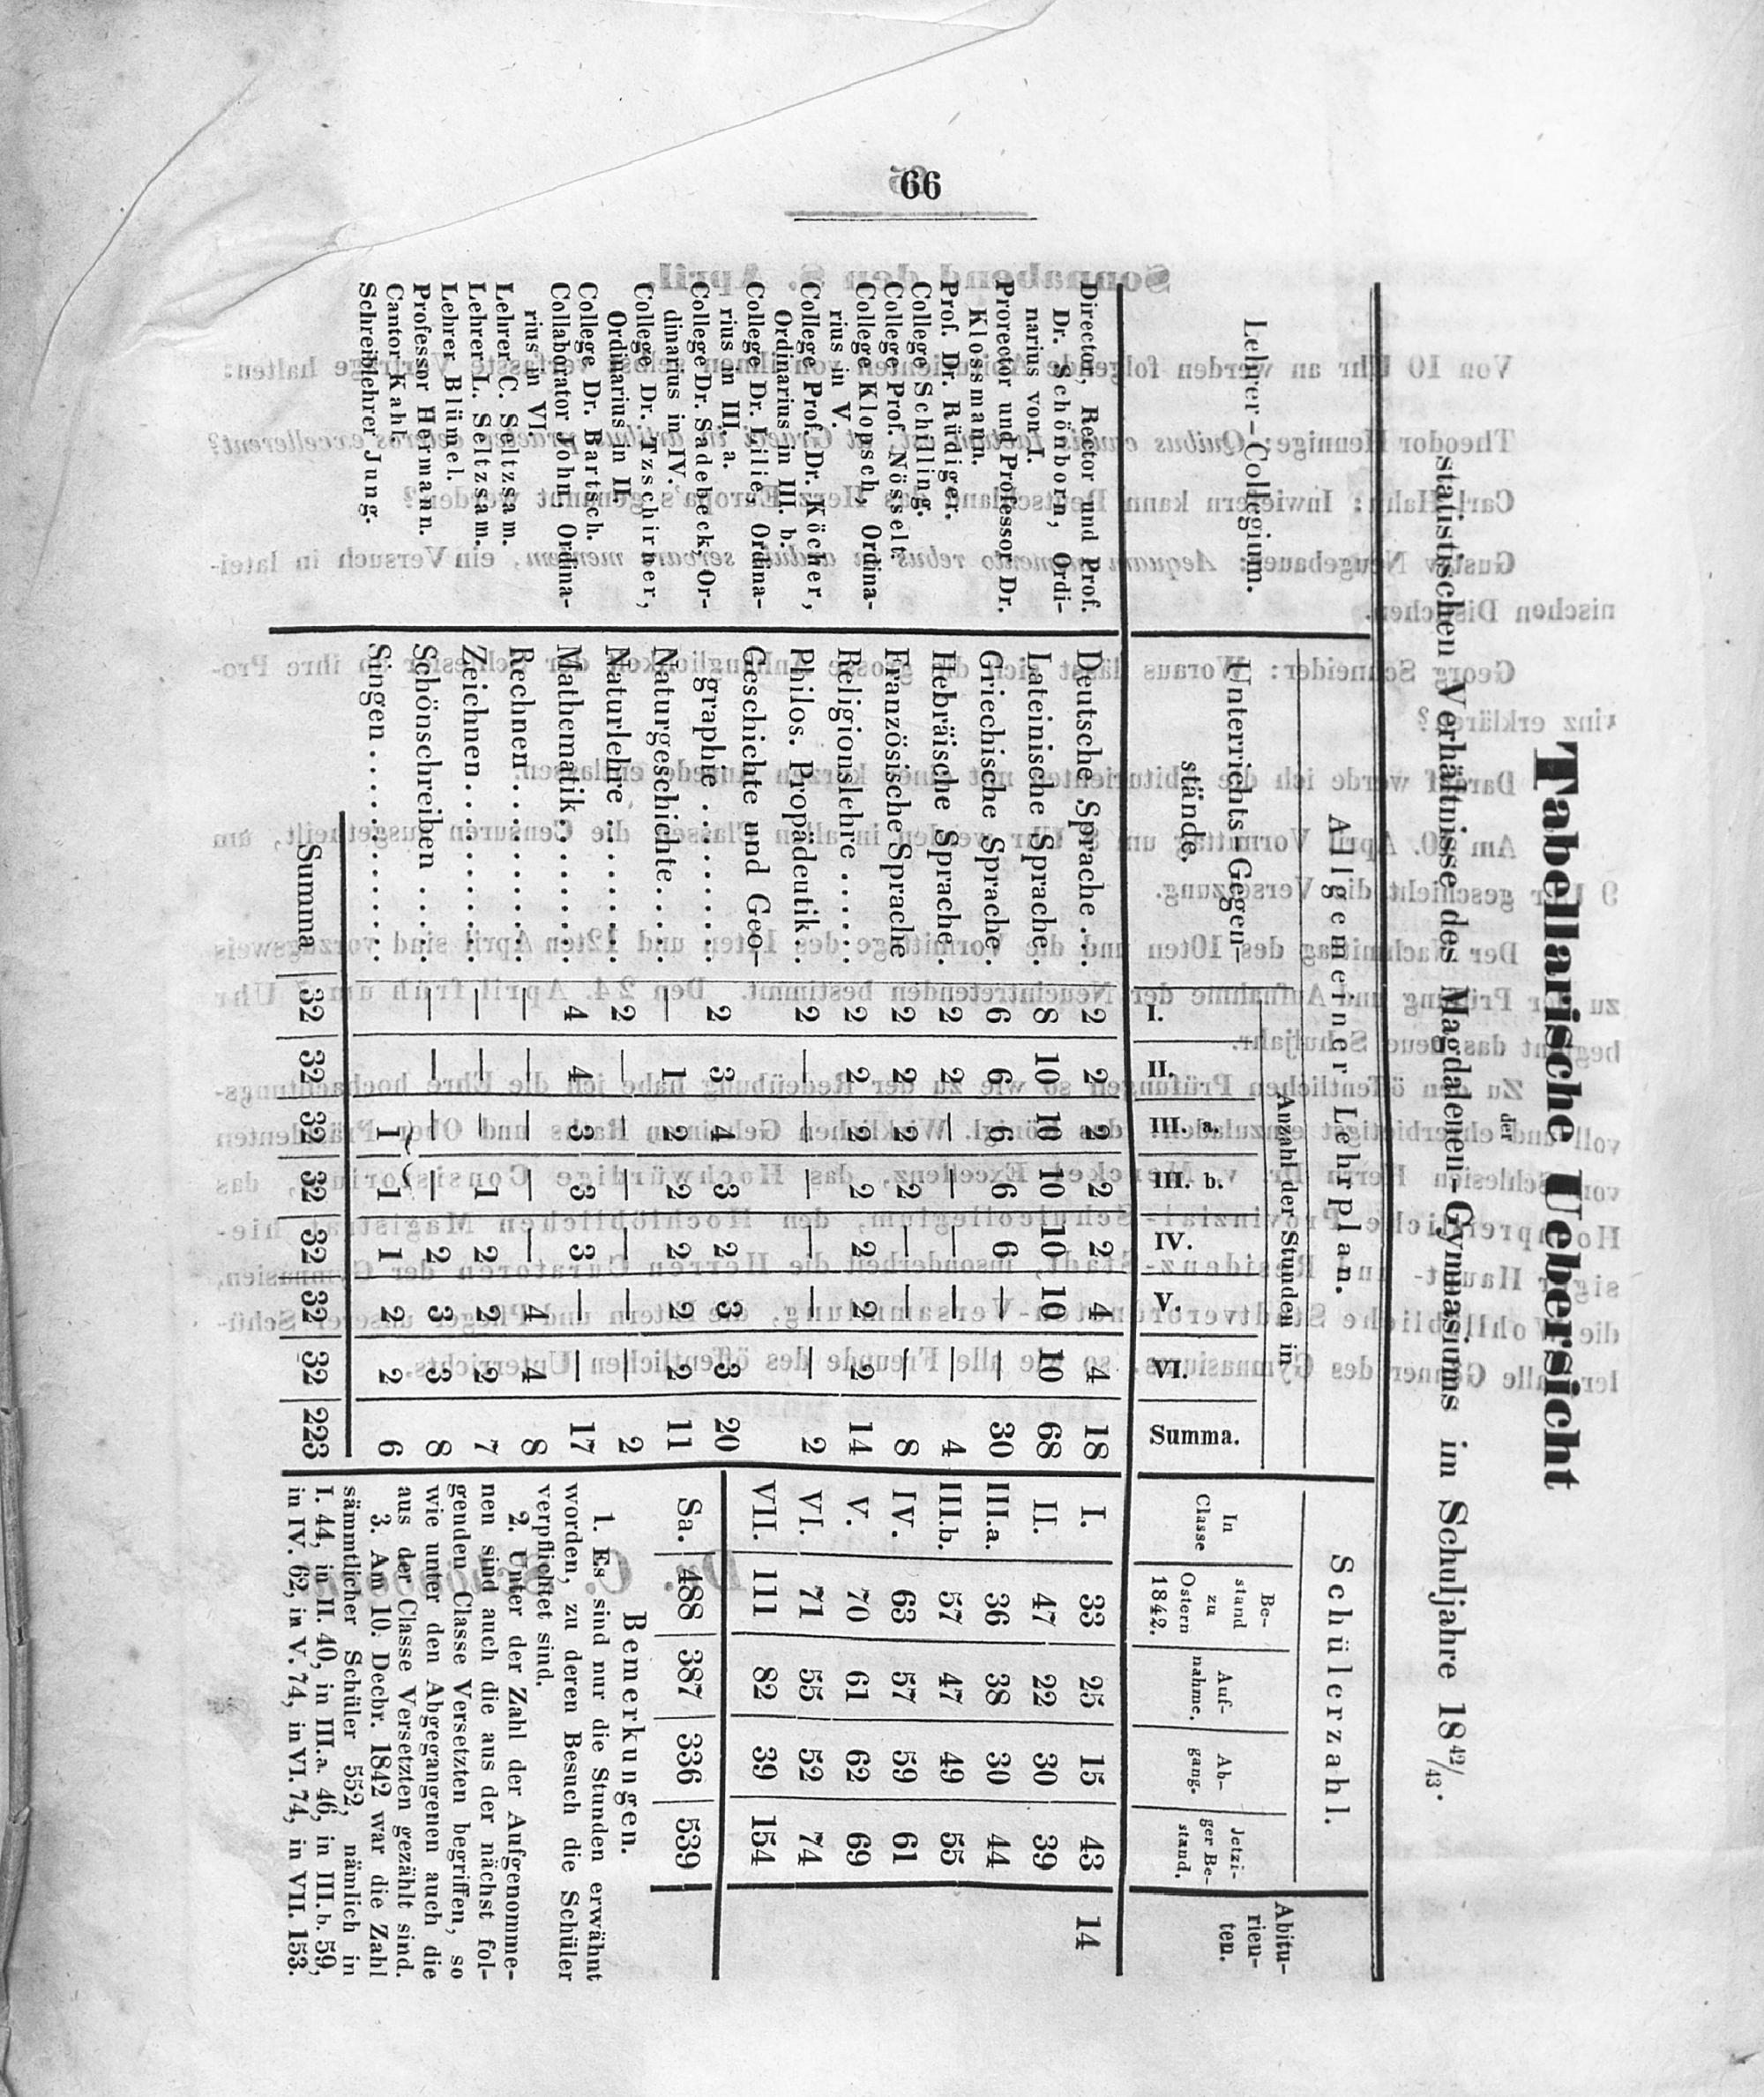 66
Tabellarische Uebersicht
der
statistischen Verhältnisse des Magdalenen-Gymnasiums im Schuljahre 18 42/43.
Lehrer-Collegium.
Director, Rector und Prof.
Dr. Schönborn, Ordi-
narius von I.
Prorector und Professor Dr.
Klossmann.
Prof. Dr. Rüdiger.
College Schilling.
College Prof. Nösselt.
College Klopsch, Ordina-
rius in V.
College Prof. Dr. Köcher,
Ordinarius in III. b.
College Dr. Lilie, Ordina-
rius in III. a.
College Dr. Sadebeck, Or-
dinarius in IV.
College Dr. Tzschirner,
Ordinarius in II.
College Dr. Bartsch.
Collaborator John, Ordina-
rius in VI.
Lehrer C. Seltzsam.
Lehrer L. Seltzsam.
Lehrer Blümel.
Professor Hermann.
Cantor Kahl.
Schreiblehrer Jung.
Allgemeiner Lehrplan.
Unterrichts-Gegen-
stände.
Anzahl der Stunden in
I. II. III. a. III. b. IV. V. VI. Summa.
Deutsche Sprache .. 2 2 2 2 2 4 4 18
Lateinische Sprache. 8 10 10 10 10 10 10 68
Griechische Sprache. 6 6 6 6 6 — — 30
Hebräische Sprache. 2 2 — — — — — 4
Französische Sprache 2 2 2 2 — — — 8
Religionslehre ..... 2 2 2 2 2 2 2 14
Philos. Propädeutik.. 2 — — — — — — 2
Geschichte und Geo-
graphie ........ 2 3 4 3 2 3 3 20
Naturgeschichte.... — 1 2 2 2 2 2 11
Naturlehre ....... 2 — — — — — — 2
Mathematik....... 4 4 3 3 3 — — 17
Rechnen......... — — — — — 4 4 8
Zeichnen......... — — — 1 2 2 2 7
Schönschreiben .... — — — — 2 3 3 8
Singen........... — — 1 1 1 2 2 6
Summa 32 32 32 32 32 32 32 223
Schülerzahl.
In
Classe
Be-
stand
zu
Ostern
1842.
Auf-
nahme.
Ab-
gang.
Jetzi-
ger Be-
stand.
Abitu-
rien-
ten.
I. 33 25 15 43 14
II. 47 22 30 39
III.a. 36 38 30 44
III.b. 57 47 49 55
IV. 63 57 59 61
V. 70 61 62 69
VI. 71 55 52 74
VII. 111 82 39 154
Sa. 488 387 336 539
Bemerkungen.
1. Es sind nur die Stunden erwähnt
worden, zu deren Besuch die Schüler
verpflichtet sind.
2. Unter der Zahl der Aufgenomme-
nen sind auch die aus der nächst fol-
genden Classe Versetzten begriffen, so
wie unter den Abgegangenen auch die
aus der Classe Versetzten gezählt sind.
3. Am 10. Decbr. 1842 war die Zahl
sämmtlicher Schüler 552, nämlich in
I. 44, in II. 40, in III.a. 46, in III.b. 59,
in IV. 62, in V. 74, in VI. 74, in VII. 153.